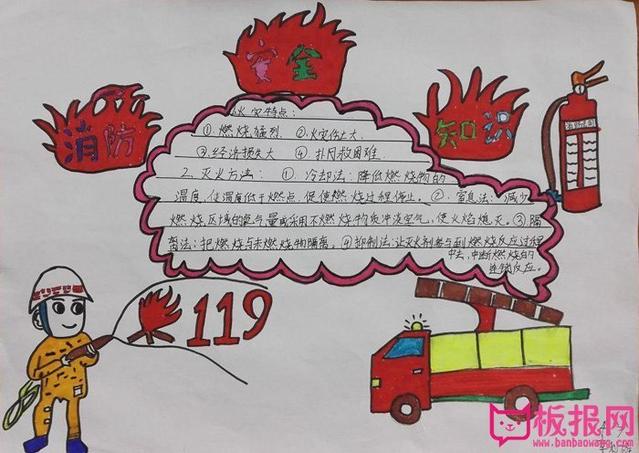 消防
安全
知识
火灾特点：
①燃烧猛烈 ②火灾伤亡大
③经济损失大 ④扑救困难
2、灭火方法：①冷却法：降低燃烧物的
温度，使温度低于燃点，促使燃烧过程停止。②窒息法：减少
燃烧区域的氧气量或采用不燃烧物质冲淡空气，使火焰熄灭。③隔
离法：把燃烧与未燃烧物隔离。④抑制法：让灭火剂参与到燃烧反应过程
中去，中断燃烧的
连锁反应。
119
板报网
www.banbaowang.com